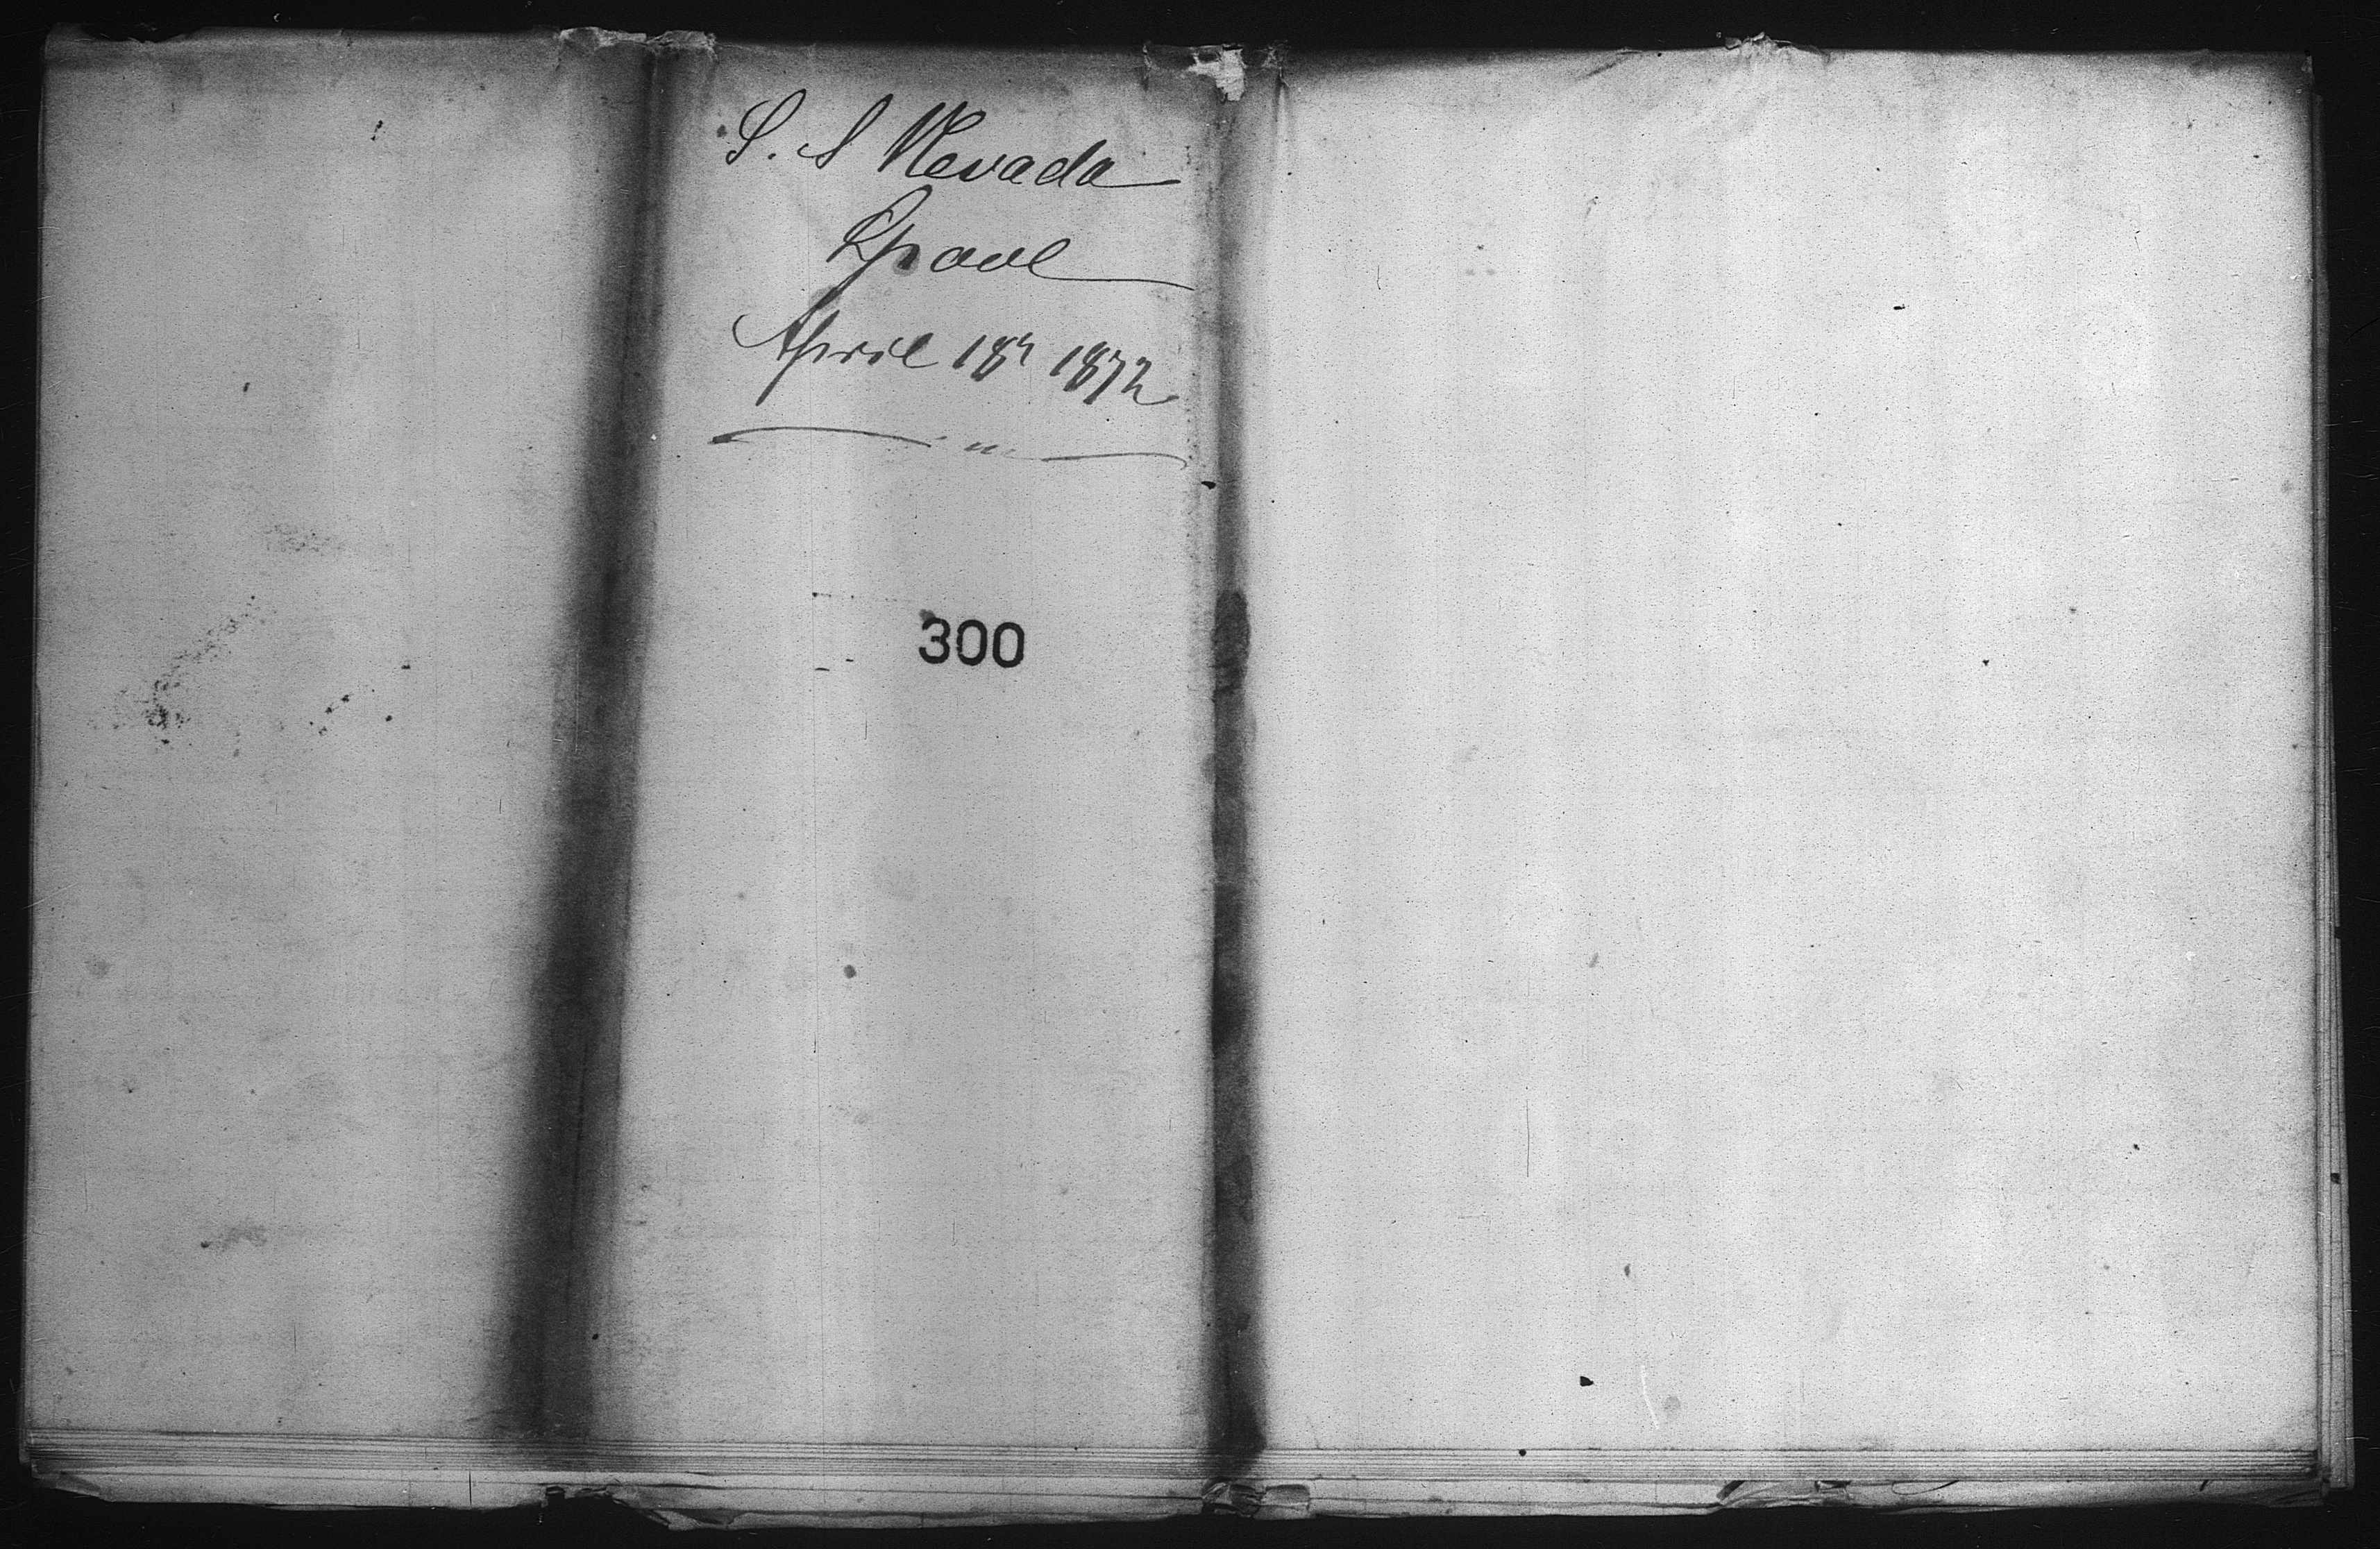 S. S Nevada
Lpool
April 18th 1872
300